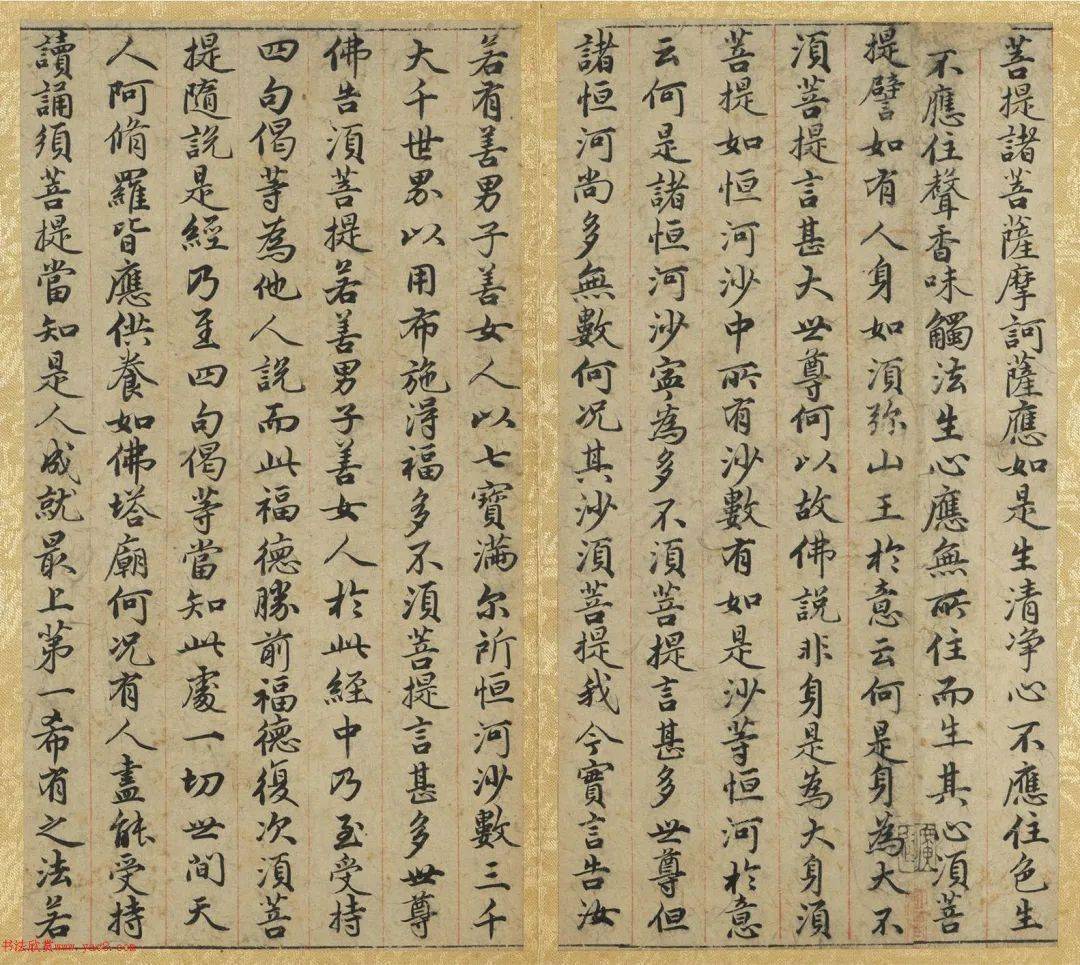 菩提諸菩薩摩訶薩應如是生清净心不應住色生
不應住聲香味觸法生心應無所住而生其心須菩
提譬如有人身如須弥山王於意云何是身為大不
須菩提言甚大世尊何以故佛說非身是為大身須
菩提如恒河沙中所有沙數有如是沙等恒河於意
云何是諸恒河沙寧為多不須菩提言甚多世尊但
諸恒河尚多無數何况其沙須菩提我今實言告汝
若有善男子善女人以七寶滿尔所恒河沙數三千
大千世界以用布施得福多不須菩提言甚多世尊
佛告須菩提若善男子善女人於此經中乃至受持
四句偈等為他人說而此福德勝前福德復次須菩
提隨說是經乃至四句偈等當知此處一切世間天
人阿脩羅皆應供養如佛塔廟何况有人盡能受持
讀誦須菩提當知是人成就最上第一希有之法若
书法欣赏www.yac8.com